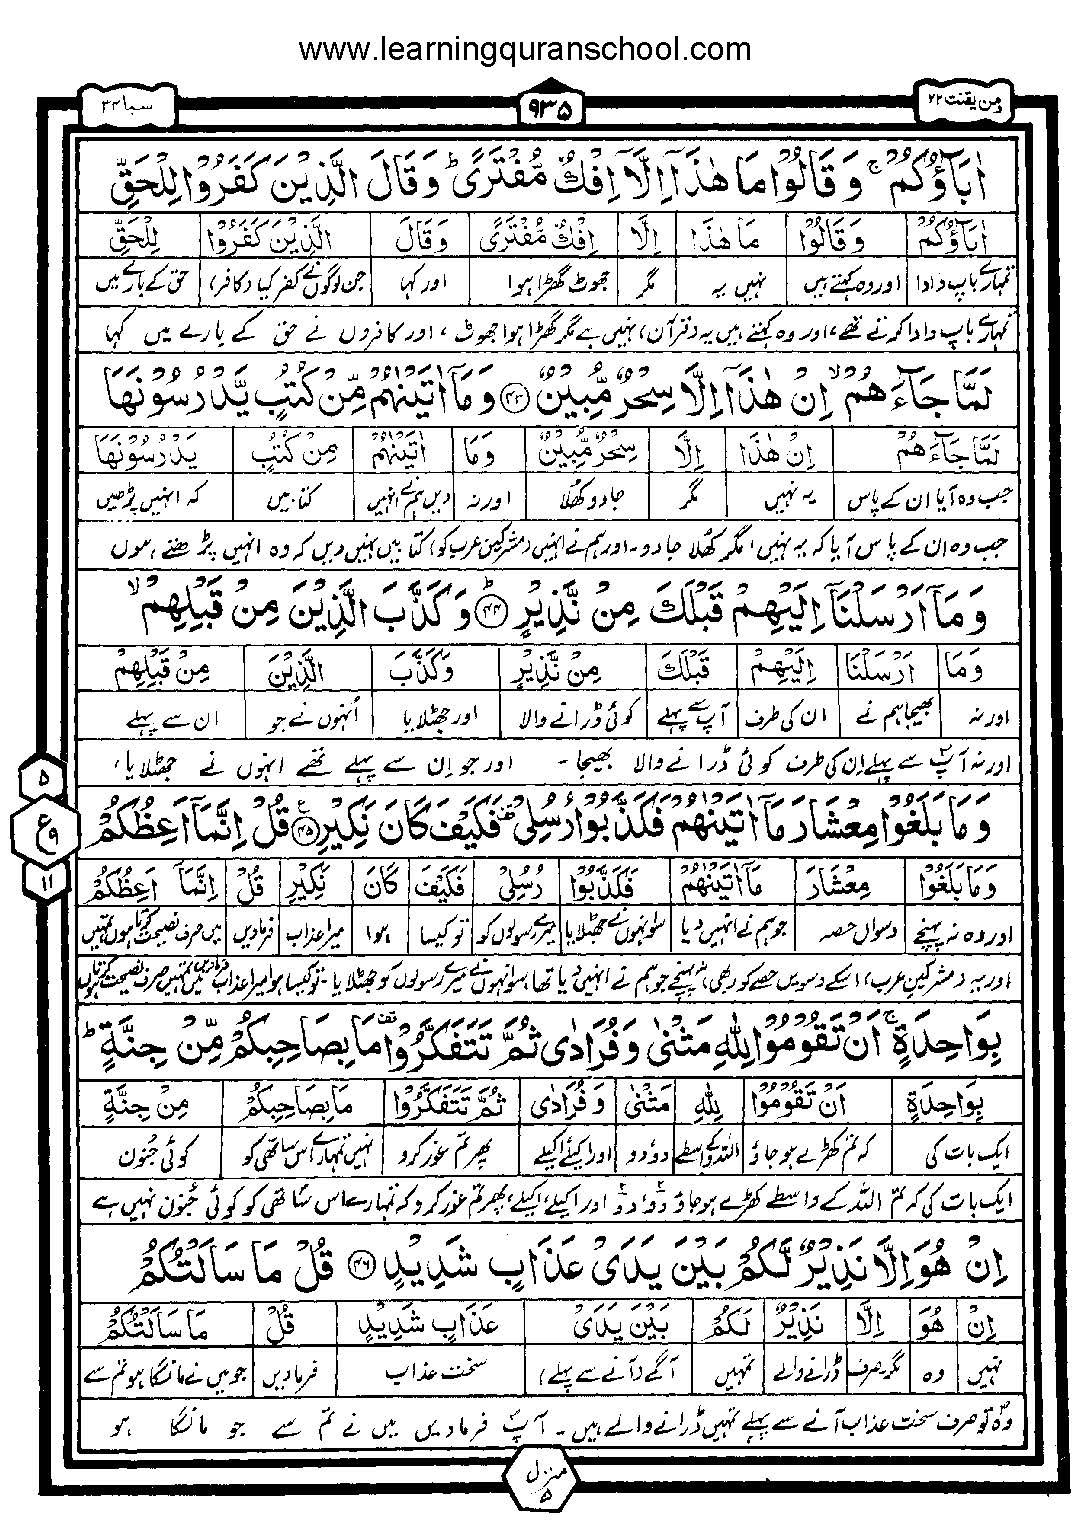 www.learningquranschool.com
ومن یقنت ۲۲
۹۳۵
سبا ۳۴
اٰبَآؤُكُمْ ۚ وَقَالُوْا مَا هٰذَاۤ اِلَّاۤ اِفْكٌ مُّفْتَرًى ؕ وَقَالَ الَّذِيْنَ كَفَرُوْا لِلْحَقِّ
اٰبَآؤُكُمْ وَقَالُوْا مَا هٰذَا اِلَّا اِفْكٌ مُّفْتَرًى وَقَالَ الَّذِيْنَ كَفَرُوْا لِلْحَقِّ
تمہارے باپ دادا اور وہ کہتے ہیں نہیں یہ مگر جھوٹ گھڑا ہوا اور کہا جن لوگوں نے کفر کیا (کافر) حق کے بارے میں
تمہارے باپ دادا کرتے تھے، اور وہ کہتے ہیں یہ (قرآن) نہیں ہے مگر گھڑا ہوا جھوٹ، اور کافروں نے حق کے بارے میں کہا
لَمَّا جَآءَهُمْ ۙ اِنْ هٰذَاۤ اِلَّا سِحْرٌ مُّبِيْنٌ ۴۳ وَمَاۤ اٰتَيْنٰهُمْ مِّنْ كُتُبٍ يَّدْرُسُوْنَهَا
لَمَّا جَآءَهُمْ اِنْ هٰذَا اِلَّا سِحْرٌ مُّبِيْنٌ وَمَا اٰتَيْنٰهُمْ مِنْ كُتُبٍ يَدْرُسُوْنَهَا
جب وہ آیا ان کے پاس یہ نہیں مگر جادو کھلا اور نہ دیں ہم نے انہیں کتابیں کہ انہیں پڑھیں
جب وہ ان کے پاس آیا کہ یہ نہیں! مگر کھلا جادو۔ اور ہم نے انہیں (مشرکین عرب کو) کتابیں نہیں دیں کہ وہ انہیں پڑھتے ہوں
وَمَاۤ اَرْسَلْنَاۤ اِلَيْهِمْ قَبْلَكَ مِنْ نَّذِيْرٍ ؕ ۴۴ وَكَذَّبَ الَّذِيْنَ مِنْ قَبْلِهِمْ ۙ
وَمَا اَرْسَلْنَا اِلَيْهِمْ قَبْلَكَ مِنْ نَّذِيْرٍ وَكَذَّبَ الَّذِيْنَ مِنْ قَبْلِهِمْ
اور نہ بھیجا ہم نے ان کی طرف آپ سے پہلے کوئی ڈرانے والا اور جھٹلایا اُنہوں نے جو ان سے پہلے
اور نہ آپ سے پہلے ان کی طرف کوئی ڈرانے والا بھیجا۔ اور جو اِن سے پہلے تھے انہوں نے جھٹلایا،
۵
ع
۹
۱۱
وَمَا بَلَغُوْا مِعْشَارَ مَاۤ اٰتَيْنٰهُمْ فَكَذَّبُوْا رُسُلِيْ فَكَيْفَ كَانَ نَكِيْرِ ۴۵ قُلْ اِنَّمَاۤ اَعِظُكُمْ
وَمَا بَلَغُوْا مِعْشَارَ مَا اٰتَيْنٰهُمْ فَكَذَّبُوْا رُسُلِيْ فَكَيْفَ كَانَ نَكِيْرِ قُلْ اِنَّمَاۤ اَعِظُكُمْ
اور وہ نہ پہنچے دسواں حصہ جو ہم نے انہیں دیا سو انہوں نے جھٹلایا میرے رسولوں کو تو کیسا ہوا میرا عذاب فرمادیں میں صرف نصیحت کرتا ہوں تمہیں
اور یہ (مشرکین عرب) اسکے دسویں حصے کو (بھی) نہ پہنچے جو ہم نے انہیں دیا تھا، سو انہوں نے میرے رسولوں کو جھٹلایا۔ تو کیسا ہوا میرا عذاب فرمادیں میں تمہیں صرف نصیحت کرتا ہوں
بِوَاحِدَةٍ ۚ اَنْ تَقُوْمُوْا لِلّٰهِ مَثْنٰى وَفُرَادٰى ثُمَّ تَتَفَكَّرُوْا مَا بِصَاحِبِكُمْ مِّنْ جِنَّةٍ ؕ
بِوَاحِدَةٍ اَنْ تَقُوْمُوْا لِلّٰهِ مَثْنٰى وَفُرَادٰى ثُمَّ تَتَفَكَّرُوْا مَا بِصَاحِبِكُمْ مِنْ جِنَّةٍ
ایک بات کی کہ تم کھڑے ہو جاؤ اللہ کے واسطے دو دو اور اکیلے اکیلے پھر تم غور کرو نہیں تمہارے اس ساتھی کو کوئی جنون
ایک بات کی کہ تم اللہ کے واسطے کھڑے ہو جاؤ دو دو اور اکیلے اکیلے، پھر تم غور کرو کہ تمہارے اس ساتھی کو کوئی جنون نہیں ہے
اِنْ هُوَ اِلَّا نَذِيْرٌ لَّكُمْ بَيْنَ يَدَيْ عَذَابٍ شَدِيْدٍ ۴۶ قُلْ مَا سَاَلْتُكُمْ
اِنْ هُوَ اِلَّا نَذِيْرٌ لَكُمْ بَيْنَ يَدَيْ عَذَابٍ شَدِيْدٍ قُلْ مَا سَاَلْتُكُمْ
نہیں وہ مگر صرف ڈرانے والے تمہیں آگے (آنے سے پہلے) سخت عذاب فرمادیں جو میں نے مانگا ہو تم سے
وہ تو صرف سخت عذاب آنے سے پہلے تمہیں ڈرانے والے ہیں۔ آپ فرمادیں میں نے تم سے جو مانگا ہو
منزل
۵